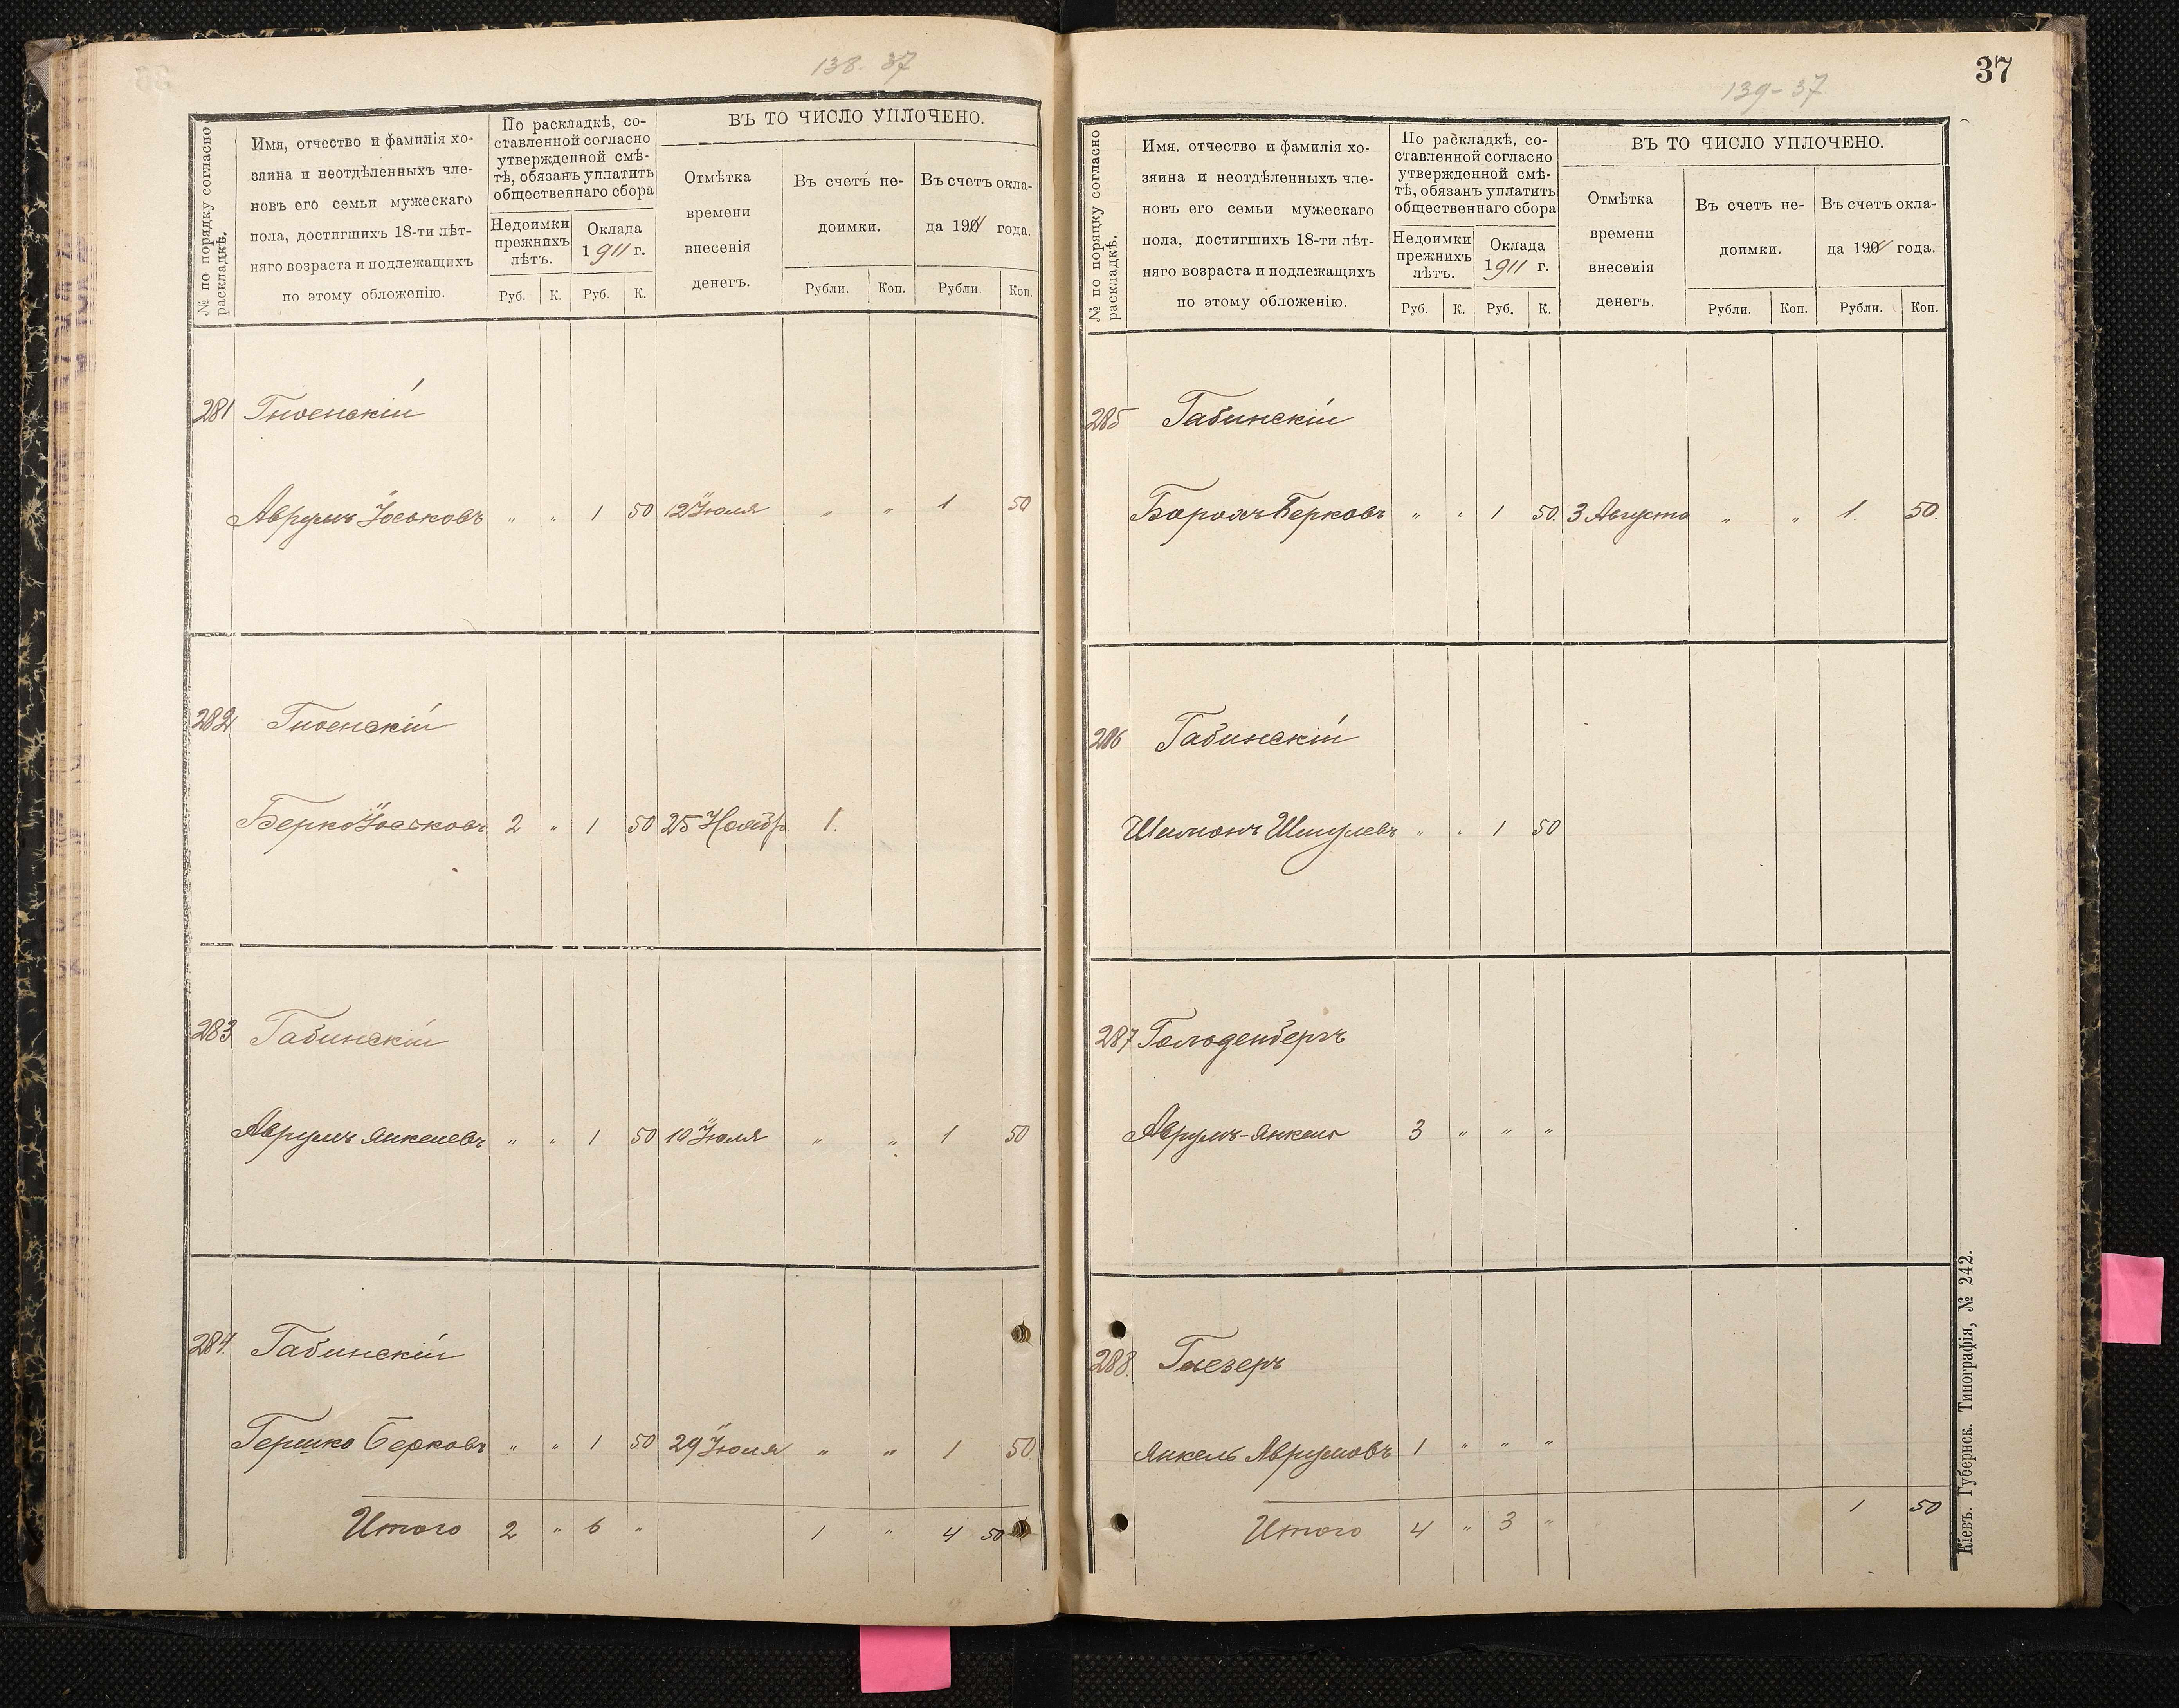 138-37
№ по порядку согласно
раскладкѣ.
Имя, отчество и фамилія хо-
зяина и неотдѣленныхъ чле-
новъ его семьи мужескаго
пола, достигшихъ 18-ти лѣт-
няго возраста и подлежащихъ
по этому обложенію.
По раскладкѣ, со-
ставленной согласно
утвержденной смѣ-
тѣ, обязанъ уплатить
общественнаго сбора
Недоимки
прежнихъ
лѣтъ.
Оклада
1911 г.
Руб. К. Руб. К.
ВЪ ТО ЧИСЛО УПЛОЧЕНО.
Отмѣтка
времени
внесенія
денегъ.
Въ счетъ не-
доимки.
Въ счетъ окла-
да 1911 года.
Рубли. Коп. Рубли. Коп.
281 Гноенскій
Аврумъ Іоськовъ " " 1 50 12 Іюля " " 1 50
282 Гноенскій
Берко Іоськовъ 2 " 1 50 25 Ноябр. 1.
283 Габинскій
Аврумъ Янкелевъ " " 1 50 10 Іюля " " 1 50
284. Габинскій
Гершко Берковъ " " 1 50 29 Іюля " " 1 50
Итого 2 " 6 " 1 " 4 50
37
139-37
№ по порядку согласно
раскладкѣ.
Имя. отчество и фамилія хо-
зяина и неотдѣленныхъ чле-
новъ его семьи мужескаго
пола, достигшихъ 18-ти лѣт-
няго возраста и подлежащихъ
по этому обложенію.
По раскладкѣ, со-
ставленной согласно
утвержденной смѣ-
тѣ, обязанъ уплатить
общественнаго сбора
Недоимки
прежнихъ
лѣтъ.
Оклада
1911 г.
Руб. К. Руб. К.
ВЪ ТО ЧИСЛО УПЛОЧЕНО.
Отмѣтка
времени
внесенія
денегъ.
Въ счетъ не-
доимки.
Въ счетъ окла-
да 1911 года.
Рубли. Коп. Рубли. Коп.
285 Габинскій
Борохъ Берковъ " " 1 50. 3 Августа " " 1. 50.
286 Габинскій
Шимонъ Шмулевъ " " 1 50
287 Голоденбергъ
Аврумъ-Янкель 3 " " "
288. Глезеръ
Янкель Аврумовъ 1 " " "
Итого 4 " 3 " 1 50
Кіевъ. Губернск. Типографія, № 242.